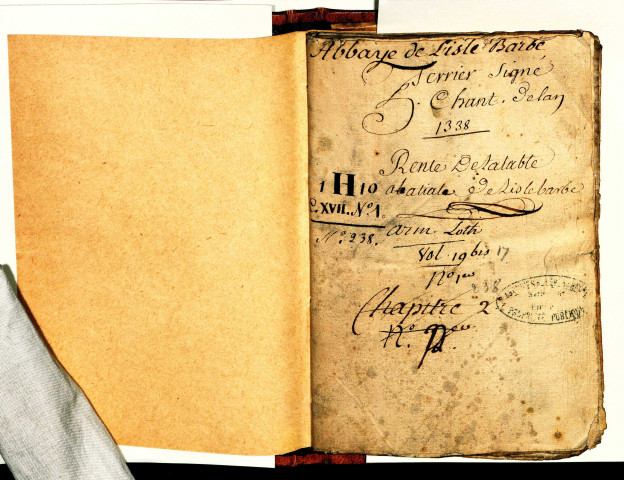 Abbaye de Lisle Barbe
Terrier Signé
Chant. delan
1338
Rente Delatable
abatiale de Lislebarbe
1 H 10
C. XVII. Nº 1.
Nº 238.
arm. Loth
Vol 19 bis 17
Nº 1er
238
Chapitre 2
Nº
PROPRIÉTÉ PUBLIQUE